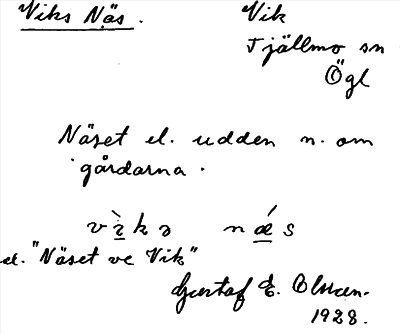 Viks Näs. Vik
Tjällmo sn
Ögl
Näset el. udden n. om
gårdarna.
vìkə nǽs
el. "Näset ve Vik"
Gustaf E. Olsson.
1928.